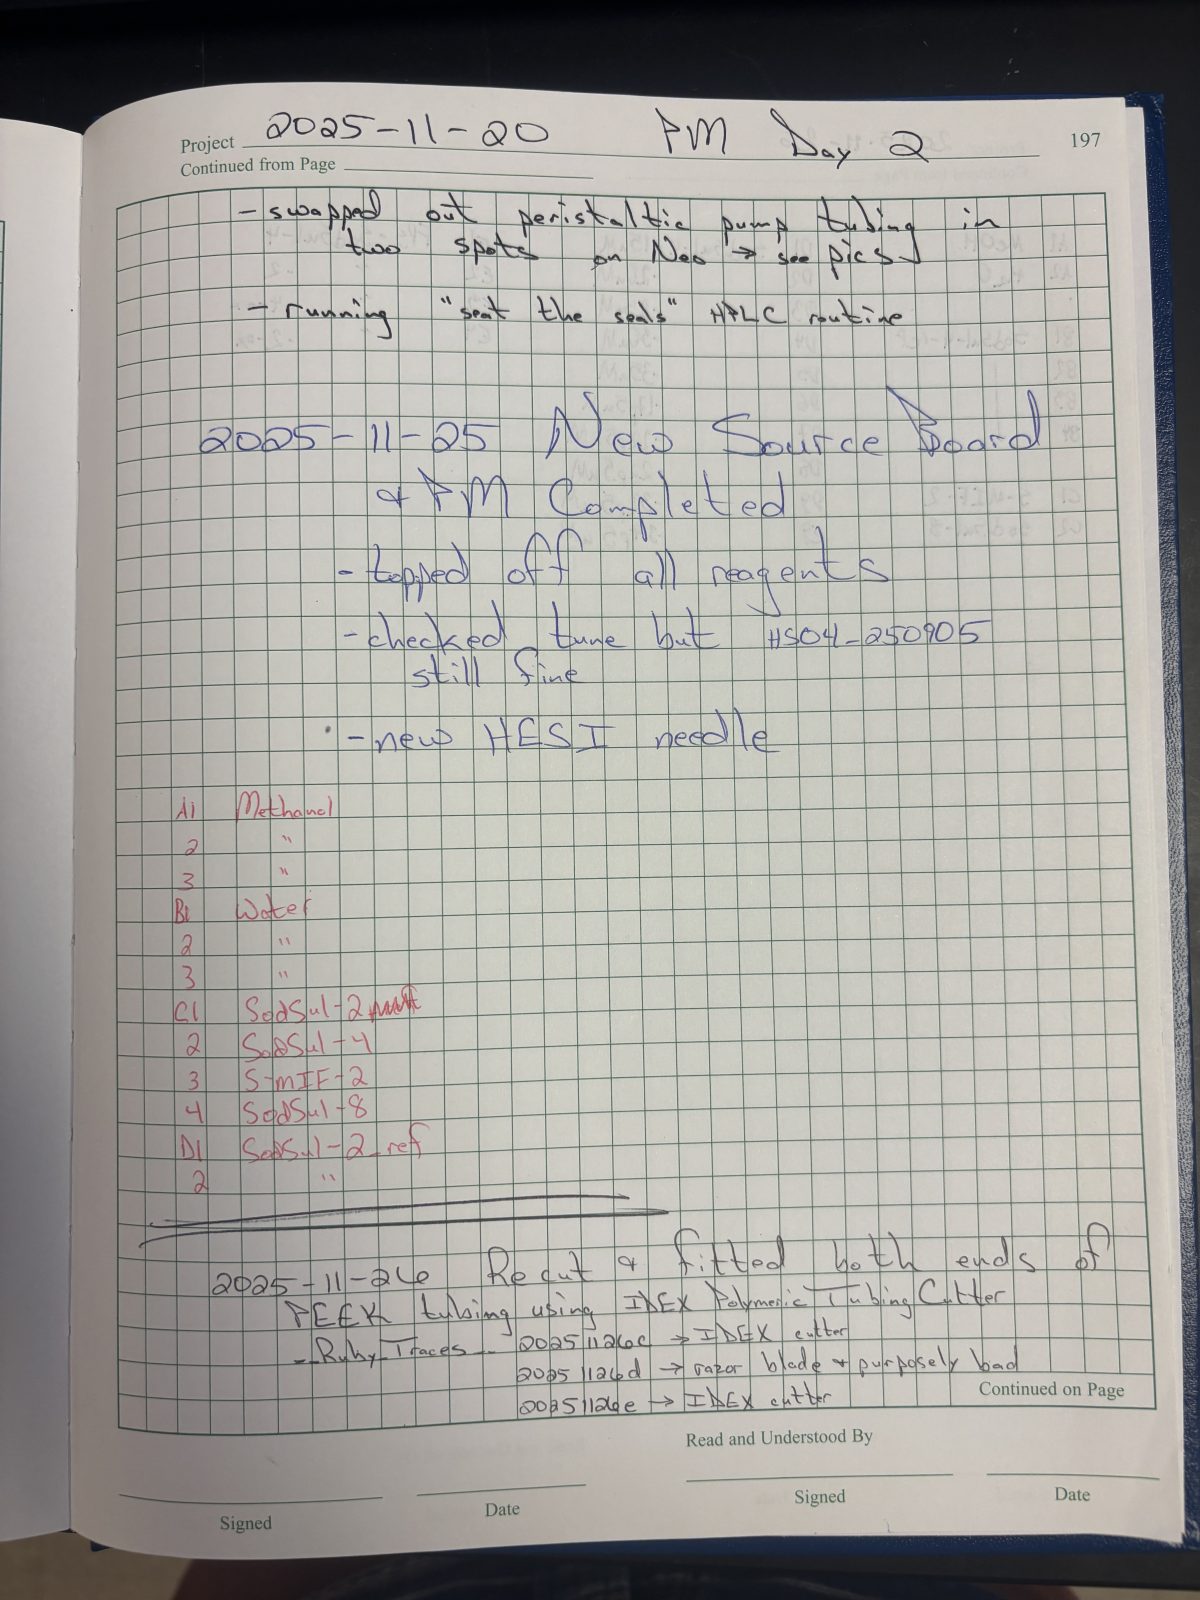 Project 2025-11-20 PM Day 2 197
Continued from Page
- swapped out peristaltic pump tubing in
two spots on Neo → see pics
- running "seat the seals" HPLC routine
2025-11-25 New Source Board
& PM Completed
- topped off all reagents
- checked tune but HSO4-250905
still fine
- new HESI needle
A1 Methanol
2 "
3 "
B1 Water
2 "
3 "
C1 SodSul-2
2 SodSul-4
3 S-MIF-2
4 SodSul-8
D1 SodSul-2_ref
2 "
2025-11-26 Recut & fitted both ends of
PEEK tubing using IDEX Polymeric Tubing Cutter
- Ruby Traces - 20251126c → IDEX cutter
20251126d → razor blade & purposely bad
20251126e → IDEX cutter
Continued on Page
Read and Understood By
Signed Date Signed Date